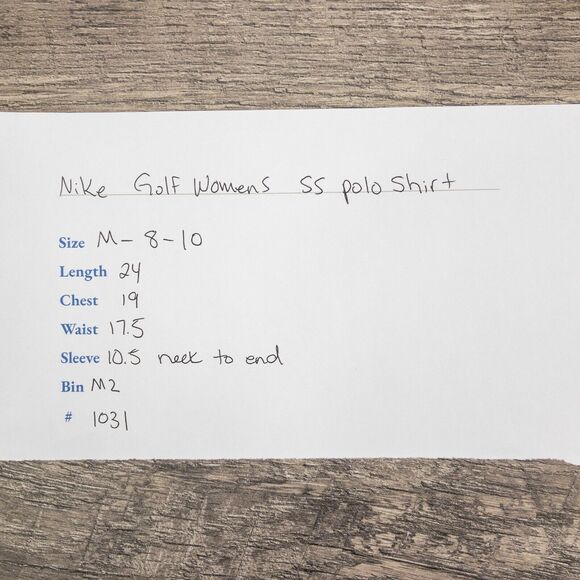 Nike Golf Womens SS polo Shirt
Size M - 8 - 10
Length 24
Chest 19
Waist 17.5
Sleeve 10.5 neck to end
Bin M2
# 1031